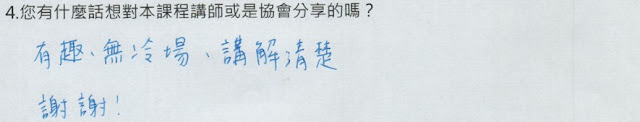 4.您有什麼話想對本課程講師或是協會分享的嗎？
有趣、無冷場、講解清楚
謝謝!